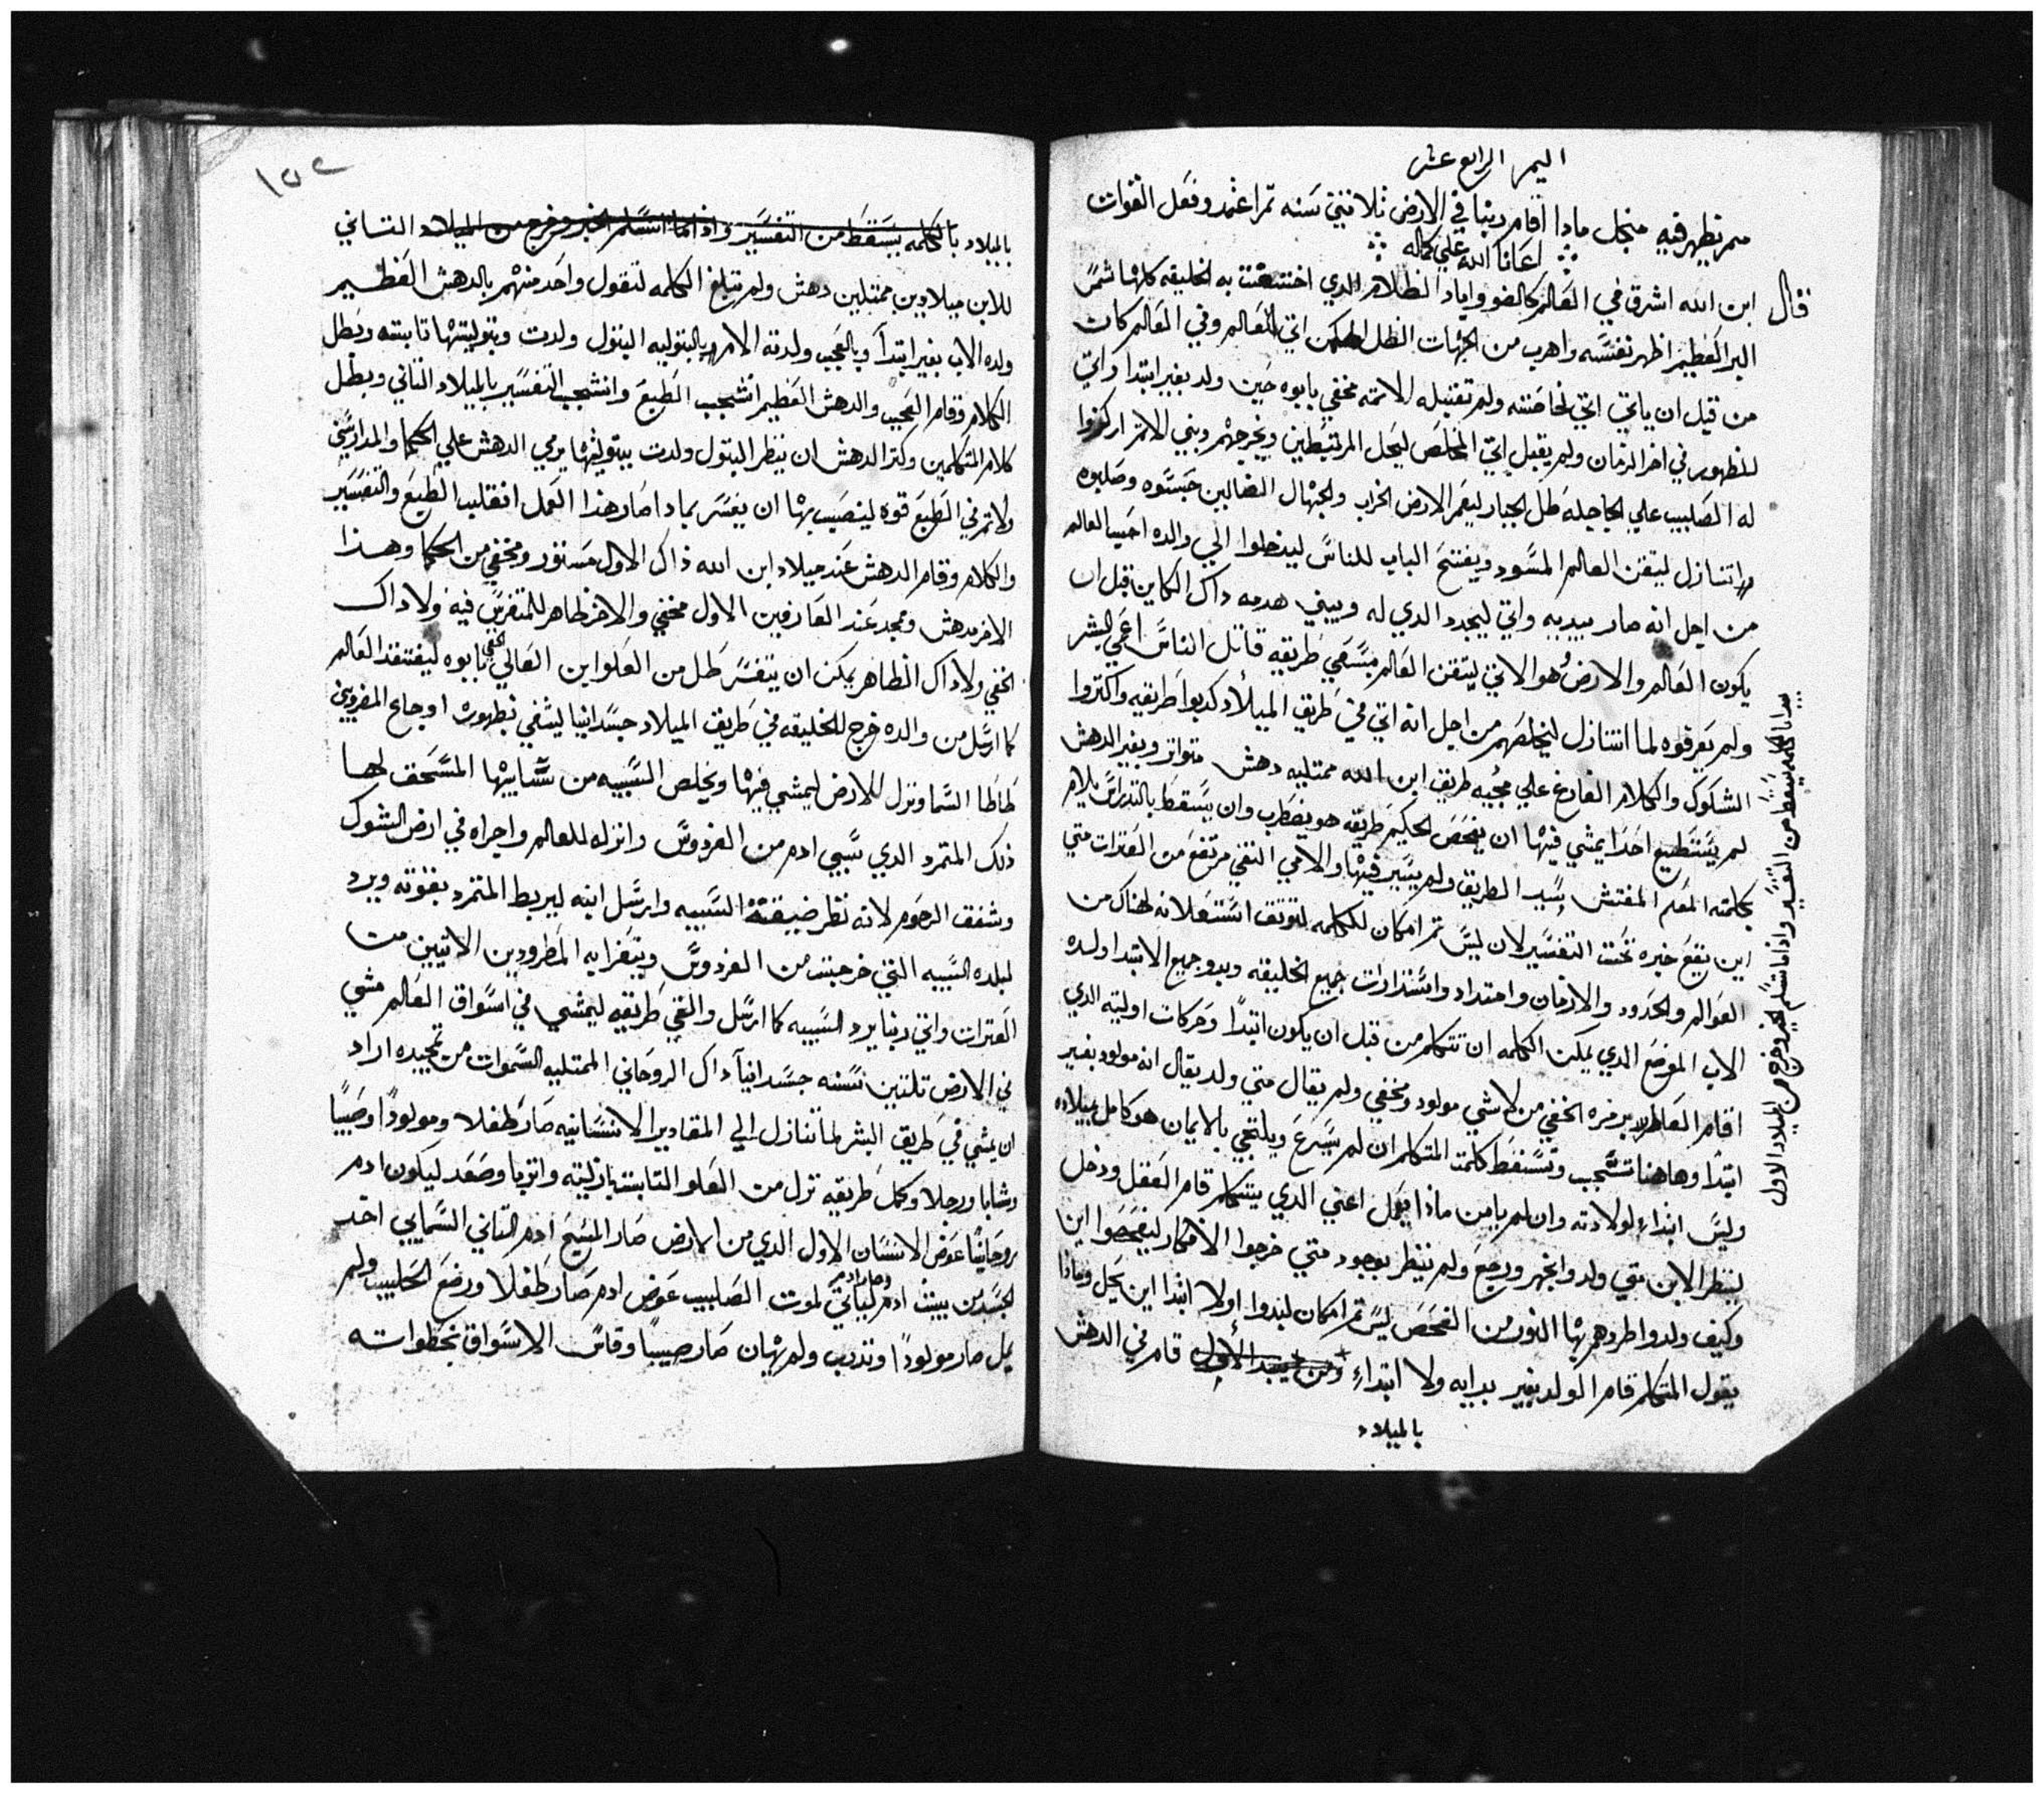 الميمر الرابع عشر
ميمر يظهر فيه منجل مادا اقام ربنا في الارض ثلاثين سنه ثم اعتمد وفعل القوات
اعاننا الله علي كماله
قال ابن الله اشرق في العالم كالضوو واباد الظلام الدي اختنقت به الخليقه كلها شمس
البر العظيم اظهر نفسه واهرب من الجهات الظل اتي للعالم وفي العالم كان
من قبل ان ياتي اتي لخاصته ولم تقبله الامته مخفي بابوه حين ولد بغير ابتدا واتي
للظهور في اخر الزمان ولم يقبل اتي المخلص ليحل المرتبطين ويخرجهم وبني الامم اركزوا
له الصليب علي الجاجله طل الجبار ليعمر الارض الخراب والجهال الضالين حبسوه وصلبوه
اتنازل ليتقن العالم المسود ويفتح الباب للناس ليدخلوا الي والده احب العالم
من اجل انه صار بيديه واتي ليجدد الدي له ويبني هدمه داك الكاين قبل ان
يكون العالم والارض هو الاتي ليتقن العالم بسعي طريقه قاتل الناس اعمي البشر
ولم يعرفوه لما اتنازل ليخلصهم من اجل انه اتي في طريق الميلاد كدبوا طريقه واكتروا
الشكوك والكلام الفارغ علي مجيه طريق ابن الله ممتليه دهش متواتر وبغير الدهش
لم يستطيع احدا يمشي فيها ان يفحص الحكيم طريقه هو يضطرب وان يسقط بالتدراس يلام
بكلمته المعلم المفتش بسيد الطريق ولم يسير فيها والامي النقي مرتفع من العترات متي
اين يقع خبره تحت التفسير لان ليس تم امكان للكلمه لتوقف اشتعلانه لهناك من
العوالم والحدود والازمان وامتداد واستدارات جميع الخليقه وبدو جميع الابتدا ولده
الاب الموضع الدي يمكن الكلمه ان تتكلم من قبل ان يكون ابتدا وحركات اوليته الدي
اقام العاطر برمزه الخفي من لاشي مولود ومخفي ولم يقال متي ولد يقال انه مولود بغير
ابتدا وهاهنا تنتشجب وتسقط كلمت المتكلم ان لم يسرع ويلتجي بالايمان هو كامل بميلاده
وليس ابتداء لولادته وان لم يامن ماذا يعمل اعني الدي يتكلم قام العقل ودخل
لينظر الابن متي ولد وانجهر ورجع ولم ينظر بوجود متي خرجوا الافكار ليفحصوا اين
وكيف ولد واطردهم بها النور من الفحص ليس تم امكان ليدوا اولا ابتدا اين يحل وماذا
يقول المتكلم قام الولد بغير بدايه ولا ابتداء قام في الدهش
بالميلاد
بالكلمه يسقط من التفسير واذا ما تسلم الخبر وخرج من الميلاد الاول
١٥٢
بالميلاد بالكلمه يسقط من التفسير واذا ما اتسلم الخبر وخرج من الميلاد التاني
للابن ميلادين ممتلين دهش ولم تبلغ الكلمه لتقول واحد منهم بالدهش العظيم
ولده الاب بغير ابتدأ وبالعجب ولدته الام بالبتوليه البتول ولدت وبتوليتها تابته وبطل
الكلام وقام العجب والدهش العظيم انشجب الطبع وانشجب التفسير بالميلاد التاني وبطل
كلام المتكلمين وكتر الدهش ان ننظر البتول ولدت ببتوليتها يرمي الدهش علي الحكما والمدارسين
ولا تم في الطبع قوه لينصيب بها ان يفسر بمادا صار هذا العمل انغلب الطبع والتفسير
والكلام وقام الدهش عند ميلاد ابن الله ذاك الاول مستور ومخفي من الحكما وهذا
الاخر مدهش وممجد عند العارفين الاول مخفي والاخر ظاهر للمتفرس فيه ولا داك
الخفي ولا داك الظاهر يمكن ان يتفسر طل من العلو ابن العالي الخفي بابوه ليفتقد العالم
كما ارسل من والده خرج للخليقه في طريق الميلاد جسدانيا ليشفي بظهوره اوجاع المضروبين
طاطا السما ونزل للارض ليمشي فيها ويخلص السبيه من سابيها المسحق لها
ذلك المتمرد الدي سبي ادم من الفردوس وانزله للعالم واجراه في ارض الشوك
وشفق الرحوم لانه نظر ضيقة السبيه وارسل ابنه ليربط المتمرد بقوته ويرد
لبلده السبيه التي خرجت من الفردوس ويتعزا به المطرودين الاتيين من
العترات واتي ربنا يرد السبيه كما ارسل والقي طريقه ليمشي في اسواق العالم مشي
في الارض تلتين سنه جسدانيآ داك الروحاني الممتليه السموات من تمجيده اراد
ان يمشي في طريق البشر لما تنازل الي المقادير الانسانيه صار طفلا ومولودا وصبيا
وشابا ورجلا وكمل طريقه نزل من العلو التابت بازليته واتربا وصعد ليكون ادم
روحانيا عوض الانسان الاول الدي من الارض صار المسيح ادم التاني السمايي اخد
الجسد من بيت ادم وصار ادم لياتي لموت الصليب عوض ادم صار طفلا ورضع الحليب ولم
يمل صار مولودا وتدرب ولم يهان صار صبيبا وقاس الاسواق بخطواته